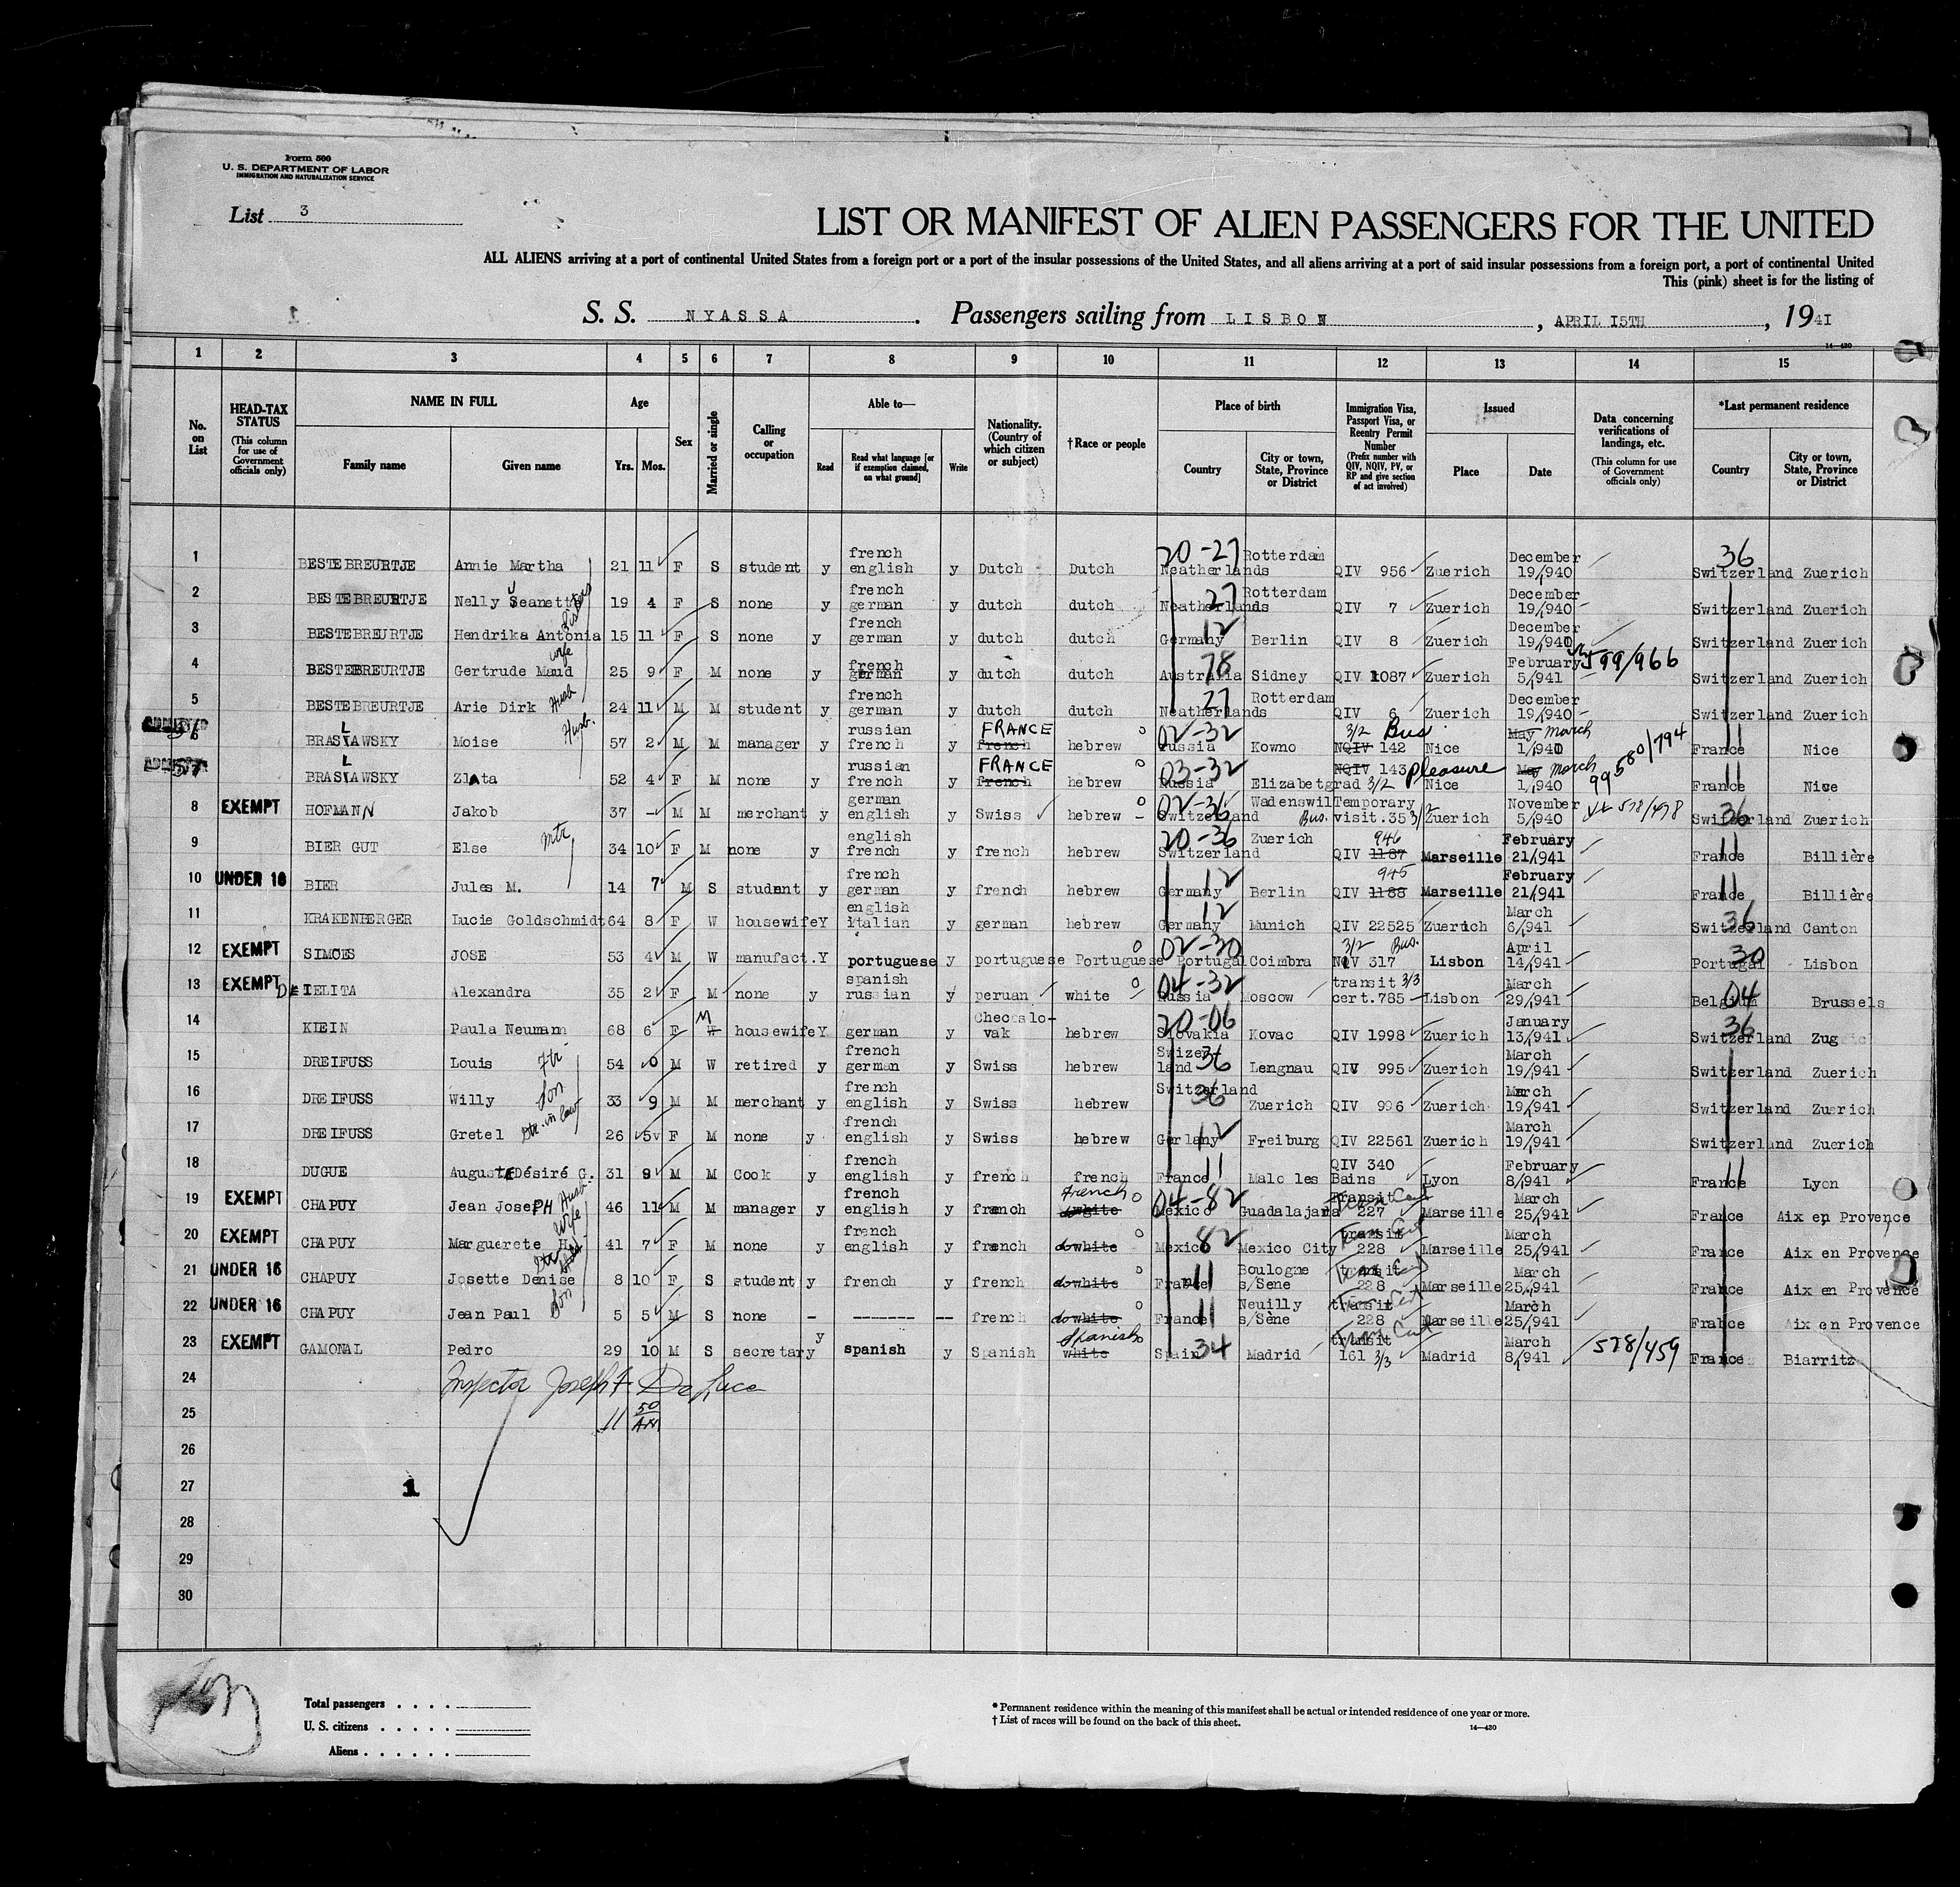 Form 500
U. S. DEPARTMENT OF LABOR
IMMIGRATION AND NATURALIZATION SERVICE
List 3
LIST OR MANIFEST OF ALIEN PASSENGERS FOR THE UNITED
ALL ALIENS arriving at a port of continental United States from a foreign port or a port of the insular possessions of the United States, and all aliens arriving at a port of said insular possessions from a foreign port, a port of continental United
This (pink) sheet is for the listing of
S. S. NYASSA. Passengers sailing from LISBON, APRIL I5TH, 1941
14—430
1 2 3 4 5 6 7 8 9 10 11 12 13 14 15
No. on List
HEAD-TAX STATUS (This column for use of Government officials only)
NAME IN FULL
Family name Given name
Age Yrs. Mos.
Sex
Married or single
Calling or occupation
Able to—
Read Read what language [or if exemption claimed, on what ground] Write
Nationality. (Country of which citizen or subject)
†Race or people
Place of birth
Country City or town, State, Province or District
Immigration Visa, Passport Visa, or Reentry Permit Number (Prefix number with QIV, NQIV, PV, or RP and give section of act involved)
Issued
Place Date
Data concerning verifications of landings, etc. (This column for use of Government officials only)
*Last permanent residence
Country City or town, State, Province or District
1 BESTEBREURTJE Annie Martha 21 11 F S student y french english y Dutch Dutch 20-27 Neatherlands Rotterdam QIV 956 Zuerich December 19/940 36 Switzerland Zuerich
2 BESTEBREURTJE Nelly Jeanette Sisters 19 4 F S none y french german y dutch dutch 27 Neatherlands Rotterdam QIV 7 Zuerich December 19/940 Switzerland Zuerich
3 BESTEBREURTJE Hendrika Antonia 15 11 F S none y french german y dutch dutch 12 Germany Berlin QIV 8 Zuerich December 19/940 Switzerland Zuerich
4 BESTEBREURTJE Gertrude Maud wife 25 9 F M none y french german y dutch dutch 78 Australia Sidney QIV 1087 Zuerich February 5/941 599/966 Switzerland Zuerich
5 BESTEBREURTJE Arie Dirk Husb 24 11 M M student y french german y dutch dutch 27 Neatherlands Rotterdam QIV 6 Zuerich December 19/940 Switzerland Zuerich
6 BRASLAWSKY Moise Husb. 57 2 M M manager y russian french y FRANCE french hebrew 02-32 Russia Kowno 3/2 Bus NQIV 142 Nice May March 1/940 11 France Nice
BRASLAWSKY Zlata 52 4 F M none y russian french y FRANCE french hebrew 03-32 Russia Elizabetgrad NQIV 143 pleasure 3/2 Nice May March 1/940 99580/794 11 France Nice
8 EXEMPT HOFMANN Jakob 37 - M M merchant y german english y Swiss hebrew 02-36 Switzerland Wadenswil Bus. Temporary visit.35 3/2 Zuerich November 5/940 36 Switzerland Zuerich
9 BIER GUT Else mtr 34 10 F M none y english french y french hebrew 20-36 Switzerland Zuerich 946 QIV 1187 Marseille February 21/941 11 France Billière
10 UNDER 16 BIER Jules M. 14 7 M S student y french german y french hebrew 12 Germany Berlin 945 QIV 1188 Marseille February 21/941 11 France Billière
11 KRAKENBERGER Lucie Goldschmidt 64 8 F W housewife Y english italian y german hebrew 12 Germany Munich QIV 22525 Zuerich March 6/941 36 Switzerland Canton
12 EXEMPT SIMOES JOSE 53 4 M W manufact. Y portuguese y portuguese Portuguese 02-30 Portugal Coimbra 3/2 Bus. 317 Lisbon April 14/941 30 Portugal Lisbon
13 EXEMPT DEIELITA Alexandra 35 2 F M none y spanish russian y peruan white 04-32 Russia Moscow transit 3/3 cert.785 Lisbon March 29/941 04 Belgium Brussels
14 KLEIN Paula Neumann 68 6 F M W housewife Y german y Checoslovak hebrew 20-06 Slovakia Kovac QIV 1998 Zuerich January 13/941 36 Switzerland Zug
15 DREIFUSS Louis Ftr 54 0 M W retired y french german y Swiss hebrew 36 Swizerland Lengnau QIV 995 Zuerich March 19/941 Switzerland Zuerich
16 DREIFUSS Willy Son 33 9 M M merchant y french english y Swiss hebrew 36 Switzerland Zuerich QIV 996 Zuerich March 19/941 Switzerland Zuerich
17 DREIFUSS Gretel Dtr. in law 26 5 F M none y french english y Swiss hebrew 12 Gerlany Freiburg QIV 22561 Zuerich March 19/941 Switzerland Zuerich
18 DUGUE Auguste Désiré G. 31 9 M M Cook y french english y french french 11 France Malo les Bains QIV 340 Lyon February 8/941 11 France Lyon
19 EXEMPT CHAPUY Jean JosePH Husb. 46 11 M M manager y french english y french French white 04-82 Mexico Guadalajara Transit Cert 227 Marseille March 25/941 France Aix en Provence
20 EXEMPT CHAPUY Marguerete H. Wife 41 7 F M none y french english y french do white 82 Mexico Mexico City transit Cert 228 Marseille March 25/941 France Aix en Provence
21 UNDER 16 CHAPUY Josette Denise 8 10 F S student y french y french do white 11 France Boulogne s/Sene transit Cert 228 Marseille March 25/941 France Aix en Provence
22 UNDER 16 CHAPUY Jean Paul Son 5 5 M S none - ------- -- french do white 11 France Neuilly s/Sène transit Cert 228 Marseille March 25/941 France Aix en Provence
23 EXEMPT GAMONAL Pedro 29 10 M S secretary y spanish y Spanish Spanish white 34 Spain Madrid transit Cert 161 3/3 Madrid March 8/941 528/459 France Biarritz
24 Inspector Joseph F DeLuca
25 11 50 AM
26
27 1
28
29
30
Total passengers . . . .
U. S. citizens . . . . .
Aliens . . . . . .
* Permanent residence within the meaning of this manifest shall be actual or intended residence of one year or more.
† List of races will be found on the back of this sheet.
14—430